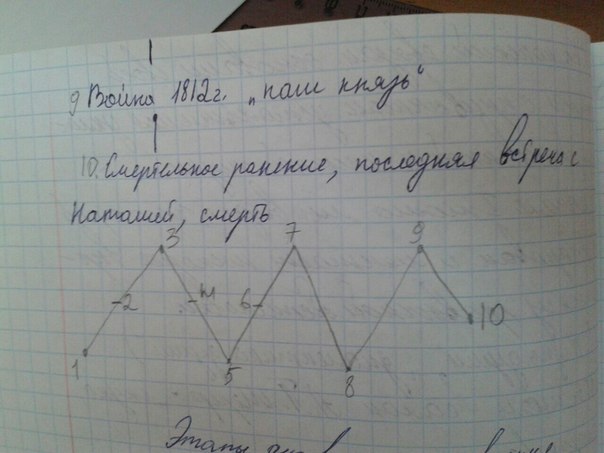 9 Война 1812г. „наш князь"
10. Смертельное ранение, последняя встреча с
Наташей, смерть
3 7 9
2 4 6 10
1 5 8
Этапы